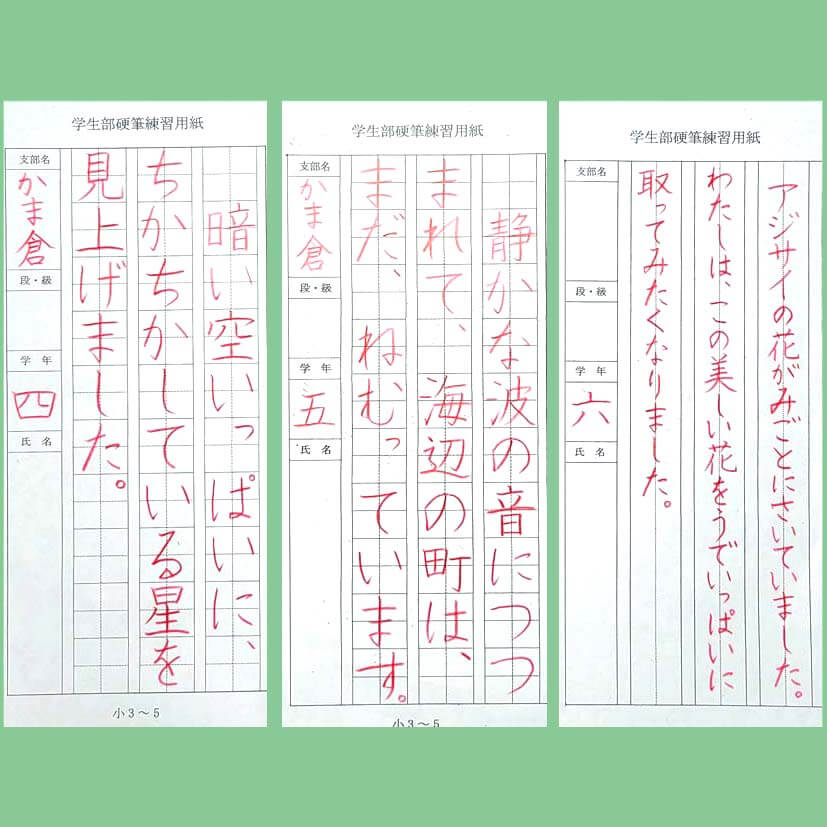 学生部硬筆練習用紙
暗い空いっぱいに、
ちかちかしている星を
見上げました。
支部名
かま倉
段・級
学年
四
氏名
小3～5
学生部硬筆練習用紙
静かな波の音につつ
まれて、海辺の町は、
まだ、ねむっています。
支部名
かま倉
段・級
学年
五
氏名
小3～5
学生部硬筆練習用紙
アジサイの花がみごとにさいていました。
わたしは、この美しい花をうでいっぱいに
取ってみたくなりました。
支部名
段・級
学年
六
氏名